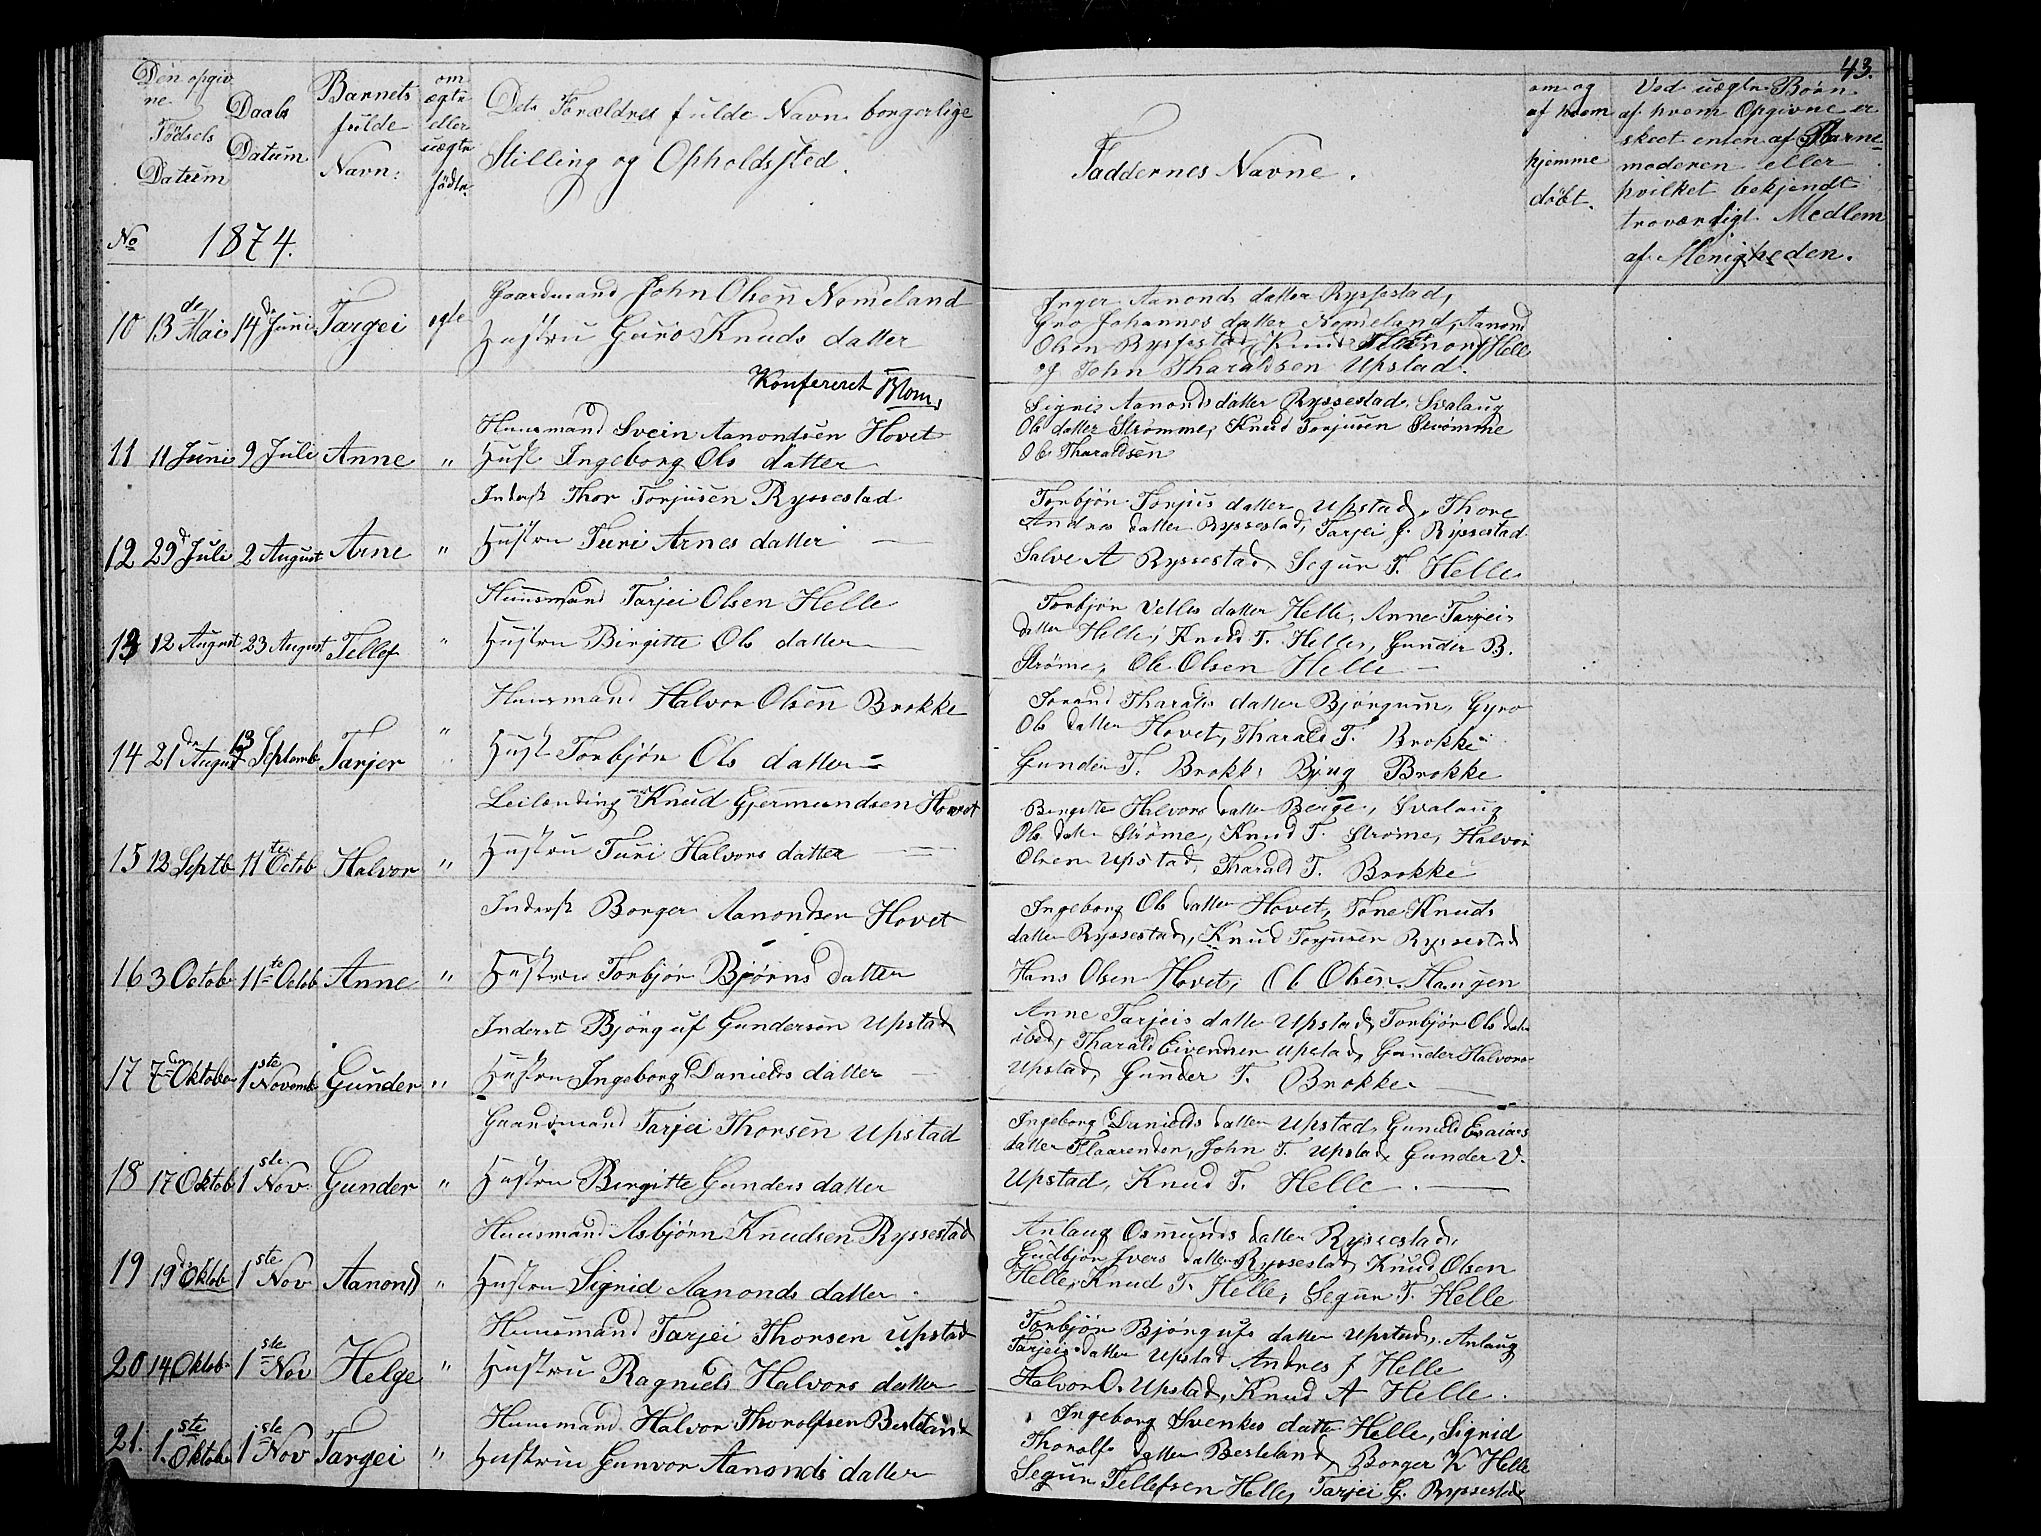 43.
Den opgiv
ne
Fødsels
Datum
Daabs
Datum
Barnets
fulde
Navn:
om
ægte
eller
uægte
født.
Dets Forældres fulde Navn borgerlige
Stilling og Opholdssted.
Faddernes Navne.
om og
af hvem
hjemme
døbt.
Ved uægte Børn
af hvem Opgivne er
skeet enten af Barne
moderen eller
hvilket bekjendt
troværdigt Medlem
af Menigheden.
No 1874.
10 13de Mai 14de Juni Targei ægte
Gaardmand John Olsen Nomeland
Hustru Guro Knuds datter
Inger Aanonds datter Ryssestad,
Gro Johannes datter Nomeland, Aanond
Olsen Ryssestad, Knud Helle
og John Tharaldsen Upstad.
Konfereret Blom.
11 11 Juni 9 Juli Anne "
Huusmand Svein Aanondsen Hovet
Hust Ingeborg Ols datter
Signe Aanondsdatter Ryssestad, Svalaug
Ols datter Strømme, Knud Torjusen Strømme
Ole Tharaldsen
12 29de Juli 2 August Arne "
Inderst Thor Torjusen Ryssestad
Hustru Turi Arnes datter
Torbjør Torjus datter Upstad, Thore
Andres datter Ryssestad, Tarjei J. Ryssestad
Salve A Ryssestad, Segur T. Helle
13 12 August 23 August Tellef "
Huusmand Tarjei Olsen Helle
Hustru Birgitte Ols datter
Torbjør Vetles datter Helle, Anne Tarjeis
datter Helle, Knud T. Helle, Gunder B.
Strøme, Ole Olsen Helle
14 21de August 13 Septemb Tarjer "
Huusmand Halvor Olsen Brokke
Hust Torbjør Ols datter
Jorand Tharalds datter Bjørgum, Gyro
Ols datter Hovet, Tharald T. Brokke
Gunder T. Brokke Bjug Brokke
15 12 Septb 11te Octob Halvor "
Leilending Knud Gjermundsen Hovet
Hustru Turi Halvors datter
Birgitte Halvors datter Berge, Svalaug
Ols datter Strøme, Knud T. Strøme, Halvor
Olsen Upstad, Tharald T. Brokke
16 3 Octob 11te Octob Anne "
Inderst Borger Aanondsen Hovet
Hustru Torbjør Bjørns datter
Ingeborg Ols datter Hovet, Tone Knuds
datter Ryssestad, Knud Torjusen Ryssestad
Hans Olsen Hovet, Ole Olsen Haugen
17 7de Oktober 1ste Novemb Gunder "
Inderst Bjørguf Gundersen Upstad
Hustru Ingeborg Daniels datter
Anne Tarjeis datter Upstad, Torbjør Ols datr
ibid, Tharald Eivendsen Upstad, Gunder Halvors
Upstad, Gunder T. Brokke
18 17 Oktob 1ste Nov Gunder "
Gaardmand Tarjei Thorsen Upstad
Hustru Birgitte Gunders datter
Ingeborg Daniels datter Upstad, Gunild Esaias
datter Flaarenden, John T. Upstad, Gunder V.
Upstad, Knud T. Helle
19 19de Oktob 1ste Nov Aanond "
Huusmand Asbjørn Knudsen Ryssestad
Hustru Sigrid Aanonds datter
Anlaug Osmunds datter Ryssestad,
Gudbjør Ivers datter Ryssestad, Knud Olsen
Helle, Knud T. Helle, Segur T. Helle
20 14 Oktob 1ste Nov Helge "
Huusmand Tarjei Thorsen Upstad
Hustru Ragnild Halvors datter
Torbjør Bjørgufs datter Upstad, Anlaug
Tarjeis datter Upstad Andres J Helle
Halvor O. Upstad, Knud A Helle.
21. 1ste Oktober 1ste Nov Targei "
Huusmand Halvor Thorolfsen Besteland
Hustru Gunvor Aanonds datter
Ingeborg Svenkes datter Helle, Sigrid
Thorolfs datter Besteland, Borger K Helle
Segur Tellefsen Helle, Tarjei G. Ryssestad